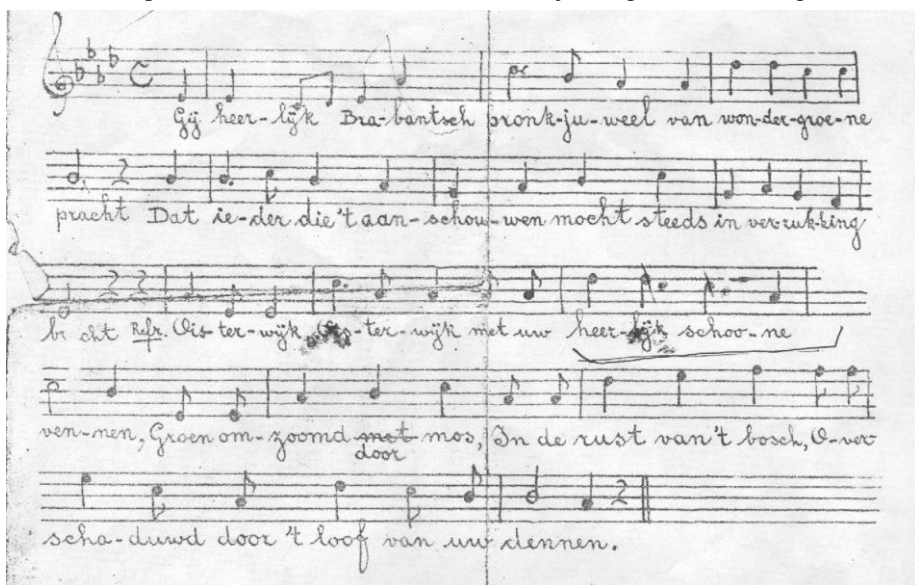 Gij heer-lijk Bra-bantsch pronk-ju-weel van won-der-groe-ne
pracht Dat ie-der die 't aan-schou-wen mocht steeds in ver-zuk-king
br cht Refr. Ois-ter-wijk, Ois-ter-wijk met uw heer-lijk schoo-ne
ven-nen, Groen om-zoomd met mos, In de rust van 't bosch, O-ver
door
scha-duwd door 't loof van uw dennen.